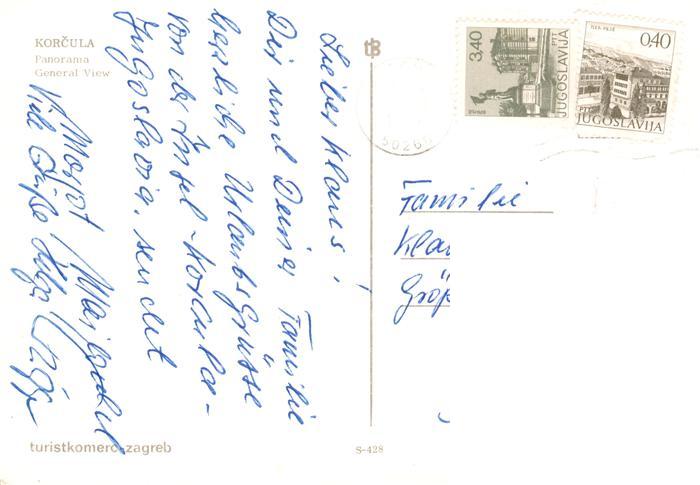 KORČULA
Panorama
General View
Lieber Klaus!
Dir und Deiner Familie
herzliche Urlaubsgrüsse
von der Insel - Korcula -
Jugoslavia, sendet
Viele Grüße Helga
turistkomerc-zagreb
S-428
tB
3,40
PTT JUGOSLAVIJA
0,40
PTT JUGOSLAVIJA
50260
Familie
Kla
Grö